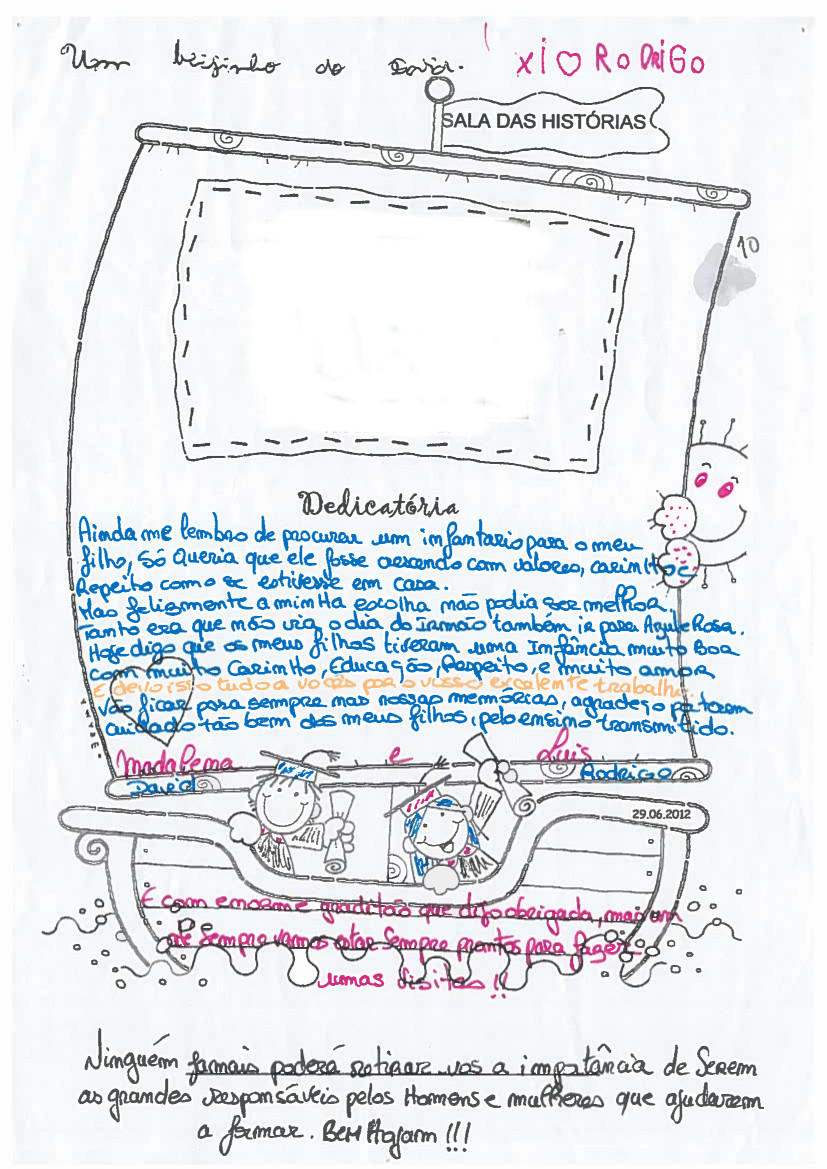 Um beijinho do David. XI ♡ RODRIGO
SALA DAS HISTÓRIAS
10
Dedicatória
Ainda me lembro de procurar um infantario para o meu
filho, só Queria que ele fosse crescendo com valores, carinho e
Repeito como se estivesse em casa.
Mas felizmente a minha escolha não podia ser melhor,
Tanto era que não via o dia do Irmão também ir para Azul e Rosa.
Hoje digo que os meus filhos tiveram uma Infância muito Boa
com muito Carinho, Educação, Respeito, e muito amor
E devo isto tudo a vocês por o vosso excelente trabalho.
Vão ficar para sempre nas nossas memórias, agradeço por terem
cuidado tão bem dos meus filhos, pelo ensino transmitido.
Madalena e Luis
David Rodrigo
29.06.2012
É com enorme graditão que digo obrigada, mas um
até Sempre vamos estar Sempre prontos para fazer
umas visitas !!
Ninguém jamais poderá retirar vos a importância de Serem
as grandes responsáveis pelos Homens e mulheres que ajudarem
a formar. BEM Hajam !!!